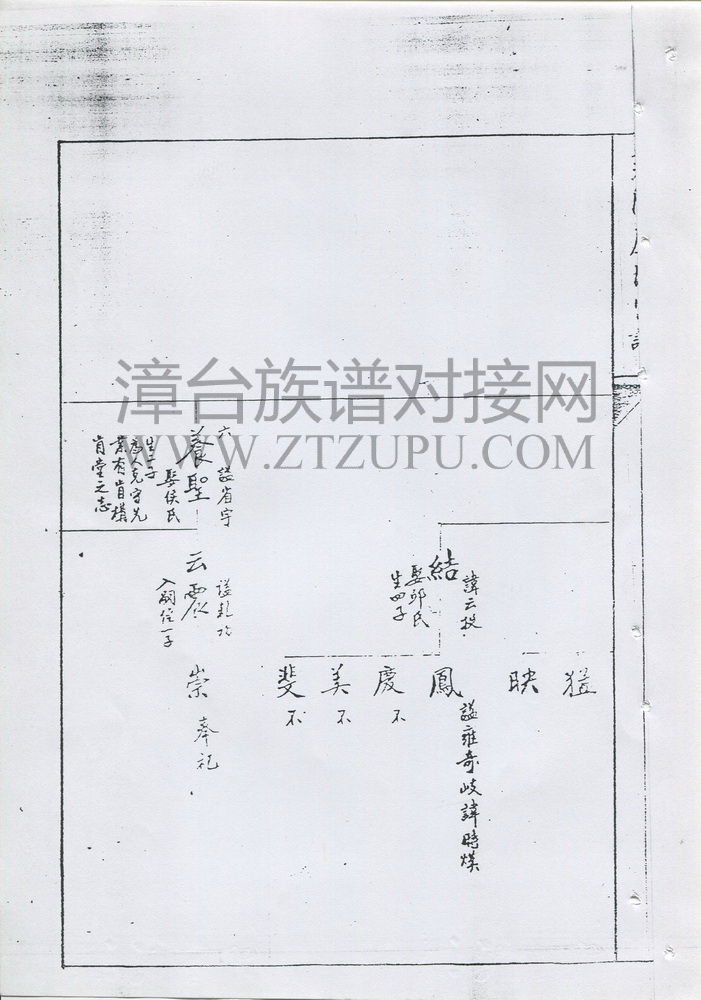 猛
映
諱云投
結
娶邱氏
生四子
鳳
諡雍奇岐諱時煐
慶
不
美
不
斐
不
六 諡省宇
養聖
娶侯氏
生二子
克守先
業有肯構
肯堂之志
云震
入嗣侄一子
崇
奉祀
漳台族谱对接网
WWW.ZTZUPU.COM